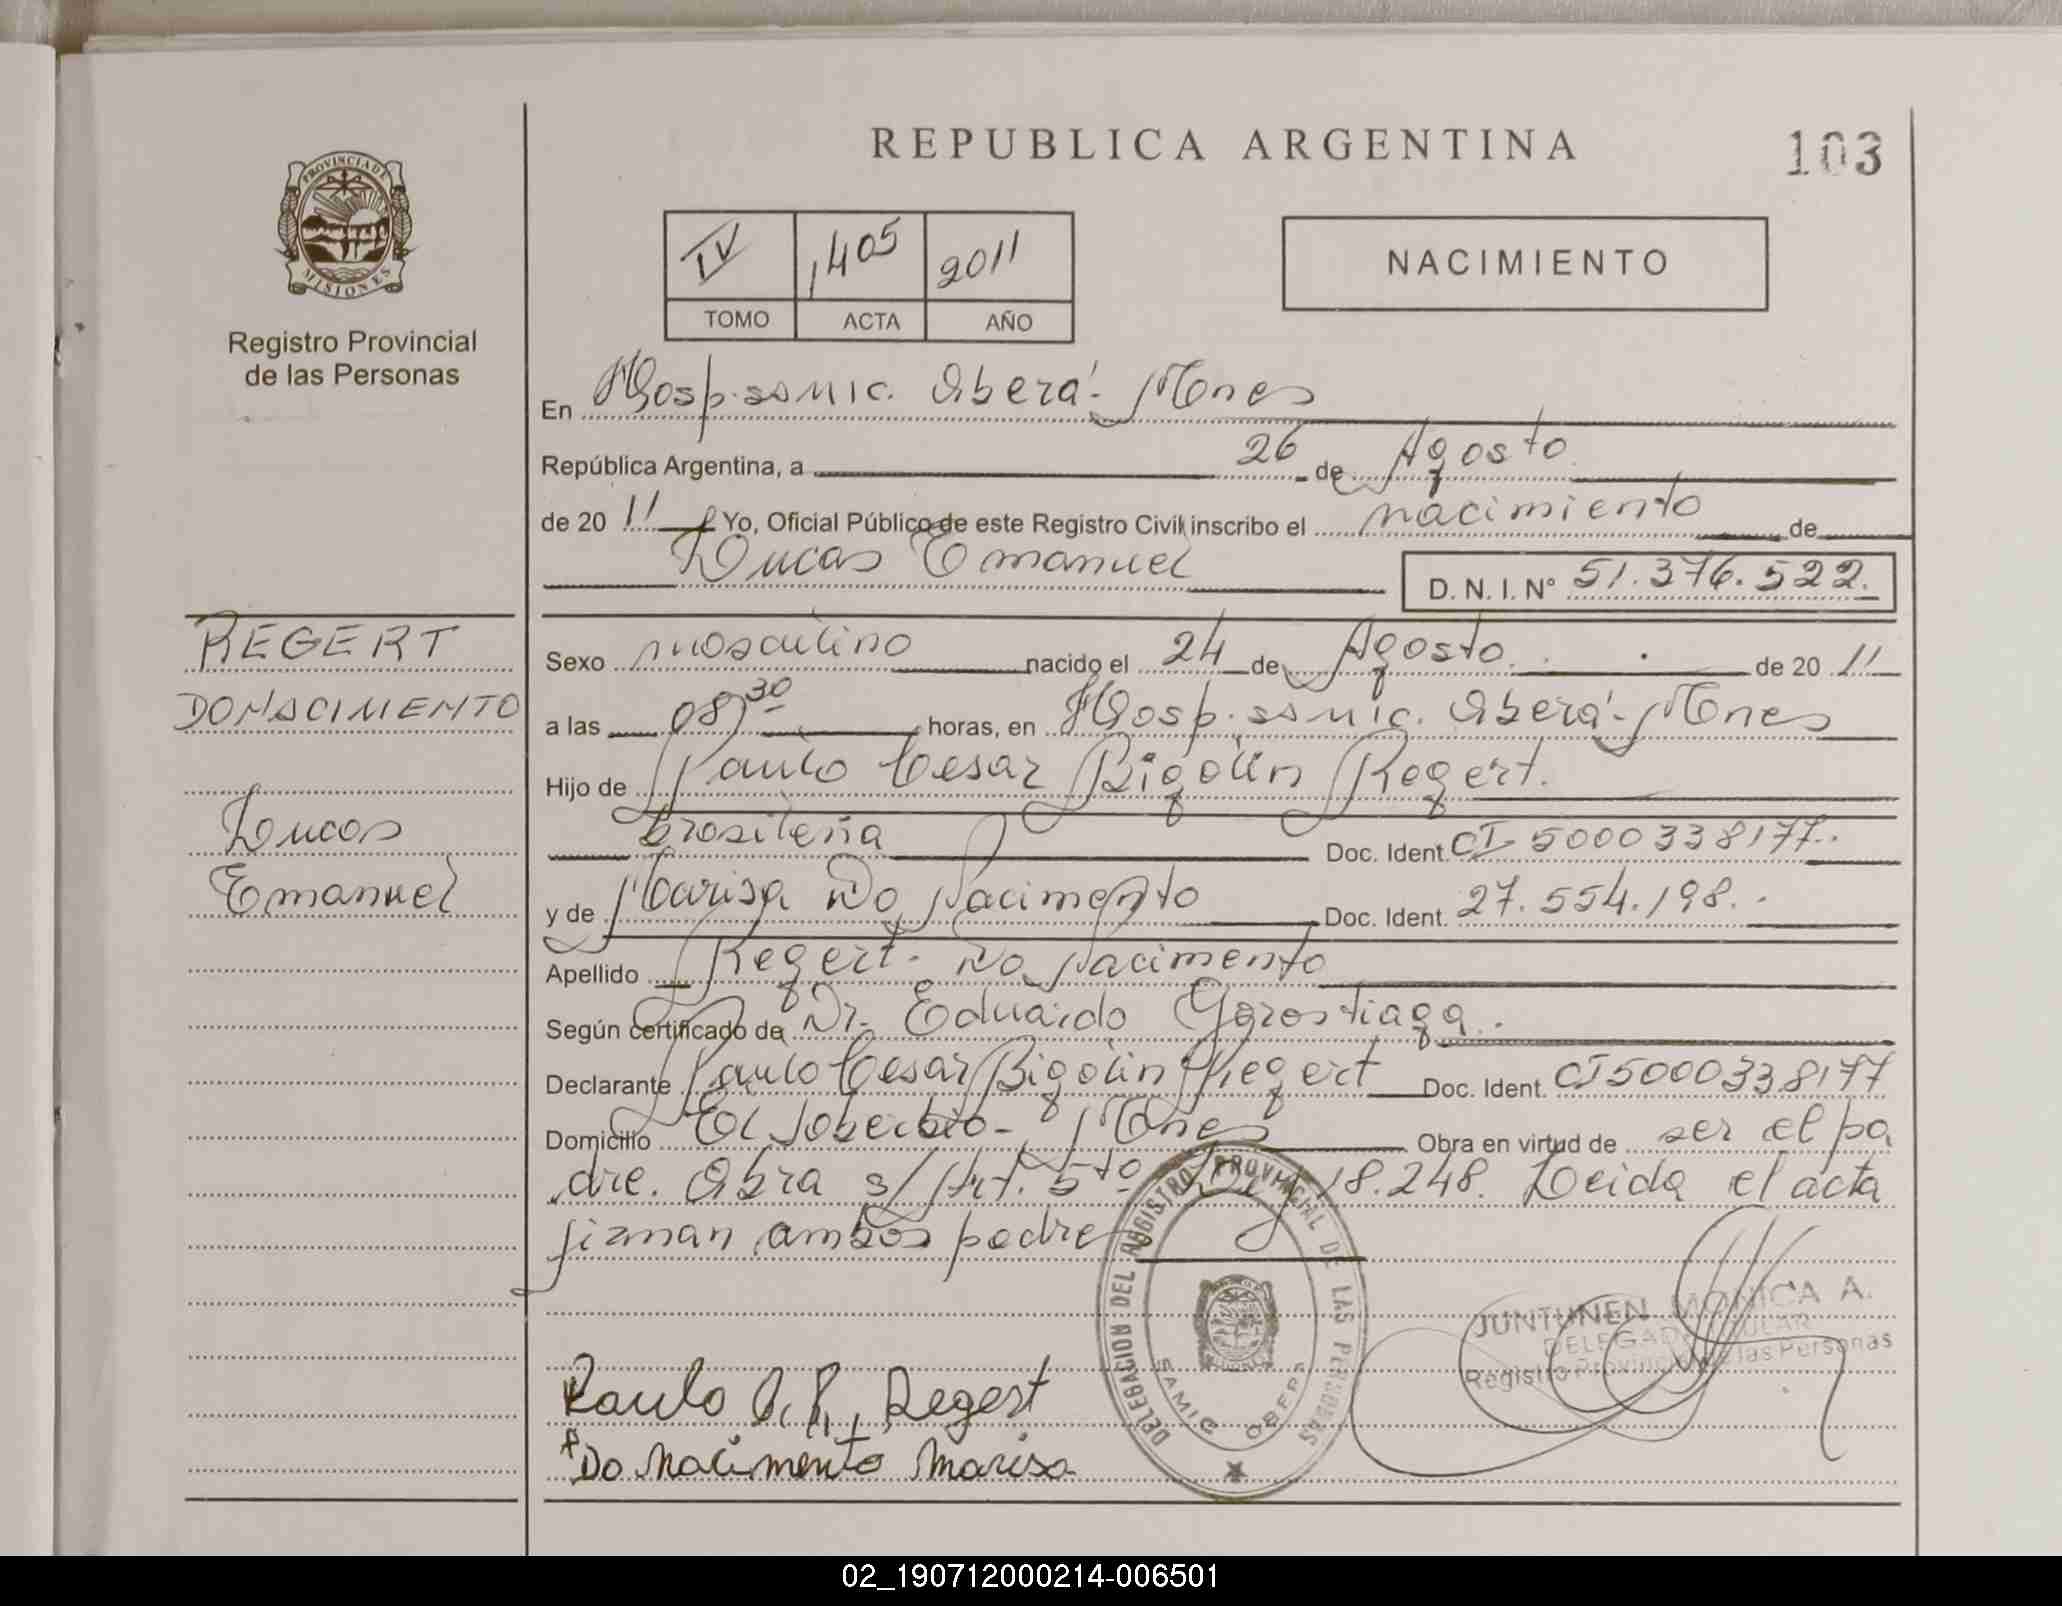 REPUBLICA ARGENTINA
103
PROVINCIA DE MISIONES
Registro Provincial
de las Personas
IV 1405 2011
TOMO ACTA AÑO
NACIMIENTO
En Hosp. samic. Oberá - Mnes
República Argentina, a 26 de Agosto
de 20 11 Yo, Oficial Público de este Registro Civil inscribo el nacimiento de
Lucas Emanuel
D. N. I. Nº 51.376.522.
REGERT
DO NACIMIENTO
Lucas
Emanuel
Sexo masculino nacido el 24 de Agosto de 20 11
a las 08,30 horas, en Hosp. samic. Oberá - Mnes
Hijo de Paulo Cesar Bigolin Regert.
brasileña Doc. Ident. CI 5000338177.
y de Marisa Do Nacimento Doc. Ident. 27.554.198.
Apellido Regert - Do Nacimento
Según certificado de Dr. Eduardo Gorostiaga.
Declarante Paulo Cesar Bigolin Regert Doc. Ident. CI 5000338177
Domicilio El Soberbio - Mnes Obra en virtud de ser el pa
dre. Obra s/Art. 5to Ley 18.248. Leida el acta
firman ambos padre
DELEGACION DEL REGISTRO PROVINCIAL DE LAS PERSONAS
SAMIC OBERA
JUNTUNEN MONICA A.
DELEGADA TITULAR
Registro Provincial de las Personas
Paulo C. B. Regert
Do Nacimento Marisa
02_190712000214-006501